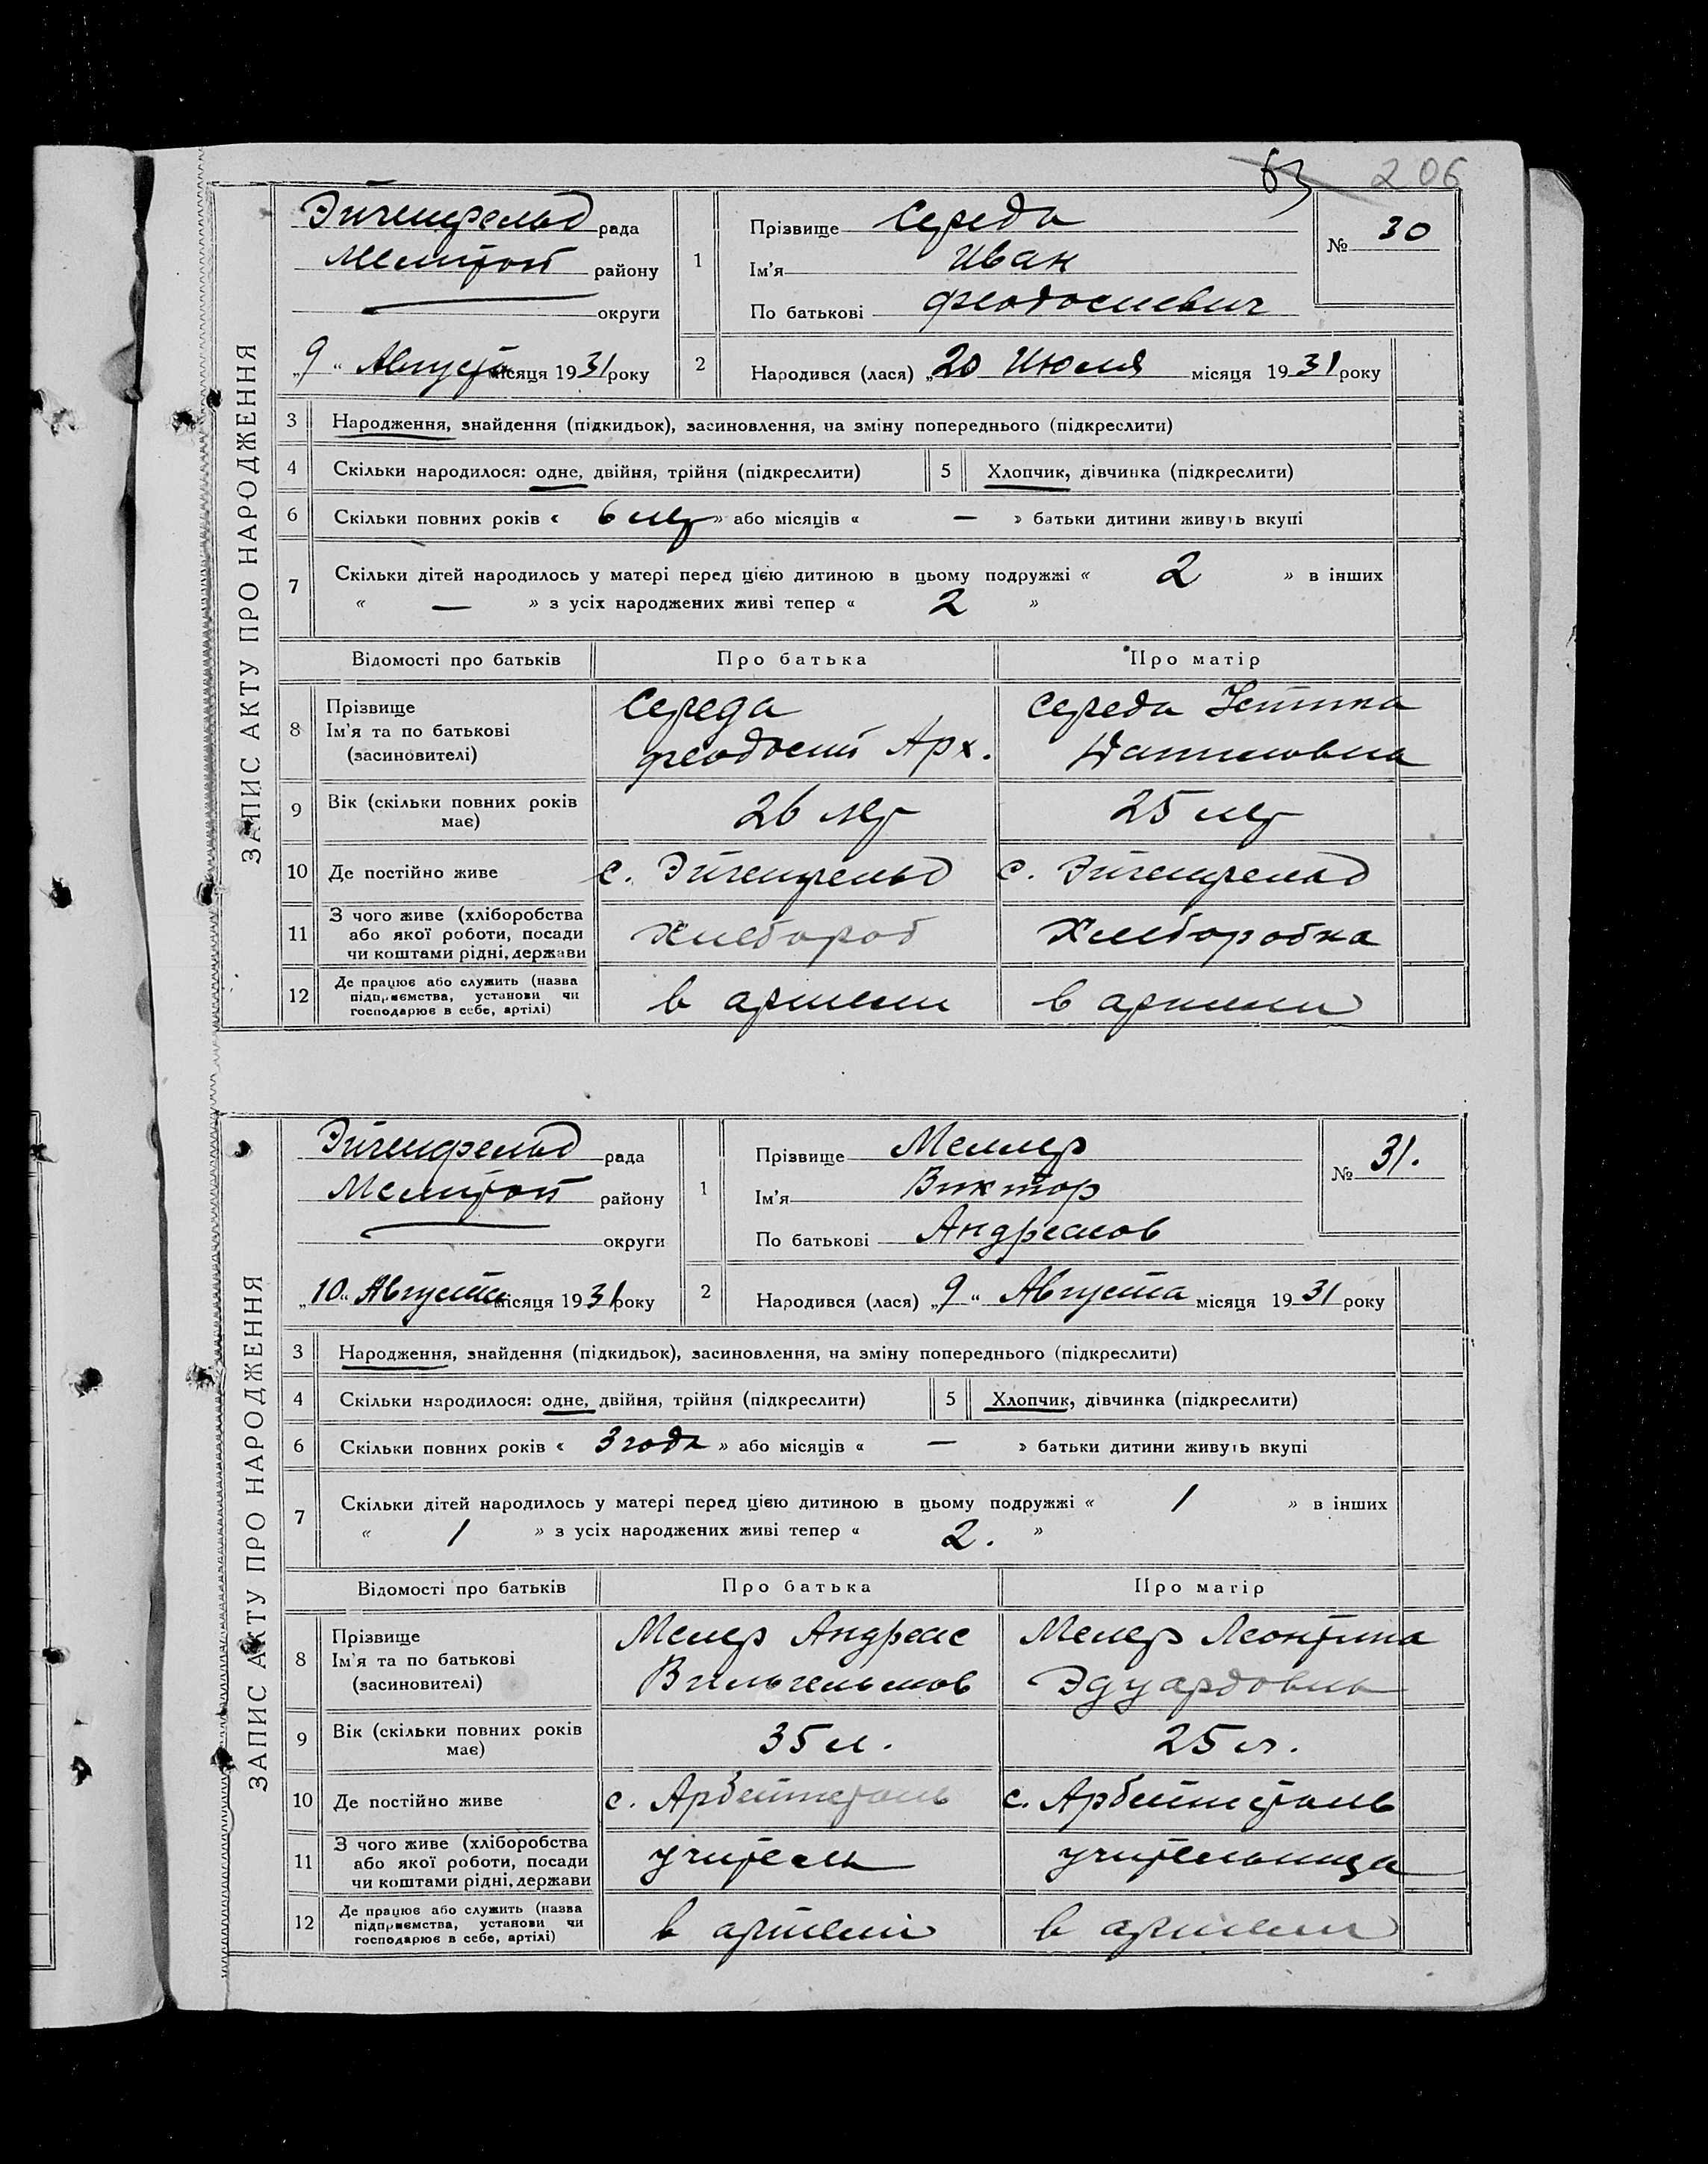 63 206
ЗАПИС АКТУ ПРО НАРОДЖЕННЯ
Эйгенфельд рада
Мелитоп району
округи
„9“ Августа місяця 1931 року
1 Прізвище Середа
Ім'я Иван
По батькові Феодосиевич
№ 30
2 Народився (лася) „20 Июля місяця 1931 року
3 Народження, знайдення (підкидьок), засиновлення, на зміну попереднього (підкреслити)
4 Скільки народилося: одне, двійня, трійня (підкреслити) 5 Хлопчик, дівчинка (підкреслити)
6 Скільки повних років « 6 лет » або місяців « — » батьки дитини живуть вкупі
7 Скільки дітей народилось у матері перед цією дитиною в цьому подружжі « 2 » в інших
« — » з усіх народжених живі тепер « 2 »
Відомості про батьків Про батька Про матір
8 Прізвище Ім'я та по батькові (засиновителі)
Середа Феодосий Арх.
Середа Устина
9 Вік (скільки повних років має) 26 лет 25 лет
10 Де постійно живе с. Эйгенфельд с. Эйгенфельд
11 З чого живе (хліборобства або якої роботи, посади чи коштами рідні, держави Хлебороб Хлеборобка
12 Де працює або служить (назва підприємства, установи чи господарює в себе, артілі) в артели в артели
ЗАПИС АКТУ ПРО НАРОДЖЕННЯ
Эйгенфельд рада
Мелитоп району
округи
„10“ Августа місяця 1931 року
1 Прізвище Меллер
Ім'я Виктор
По батькові Андреасов
№ 31.
2 Народився (лася) „9“ Августа місяця 1931 року
3 Народження, знайдення (підкидьок), засиновлення, на зміну попереднього (підкреслити)
4 Скільки народилося: одне, двійня, трійня (підкреслити) 5 Хлопчик, дівчинка (підкреслити)
6 Скільки повних років « 3 года » або місяців « — » батьки дитини живуть вкупі
7 Скільки дітей народилось у матері перед цією дитиною в цьому подружжі « 1 » в інших
« 1 » з усіх народжених живі тепер « 2. »
Відомості про батьків Про батька Про матір
8 Прізвище Ім'я та по батькові (засиновителі)
Мелер Андреас Вильгельмов
Мелер Леонтина Эдуардовна
9 Вік (скільки повних років має) 35 л. 25 л.
10 Де постійно живе с. Арбейтсталь с. Арбейтсталь
11 З чого живе (хліборобства або якої роботи, посади чи коштами рідні, держави учитель учительница
12 Де працює або служить (назва підприємства, установи чи господарює в себе, артілі) в артели в артели